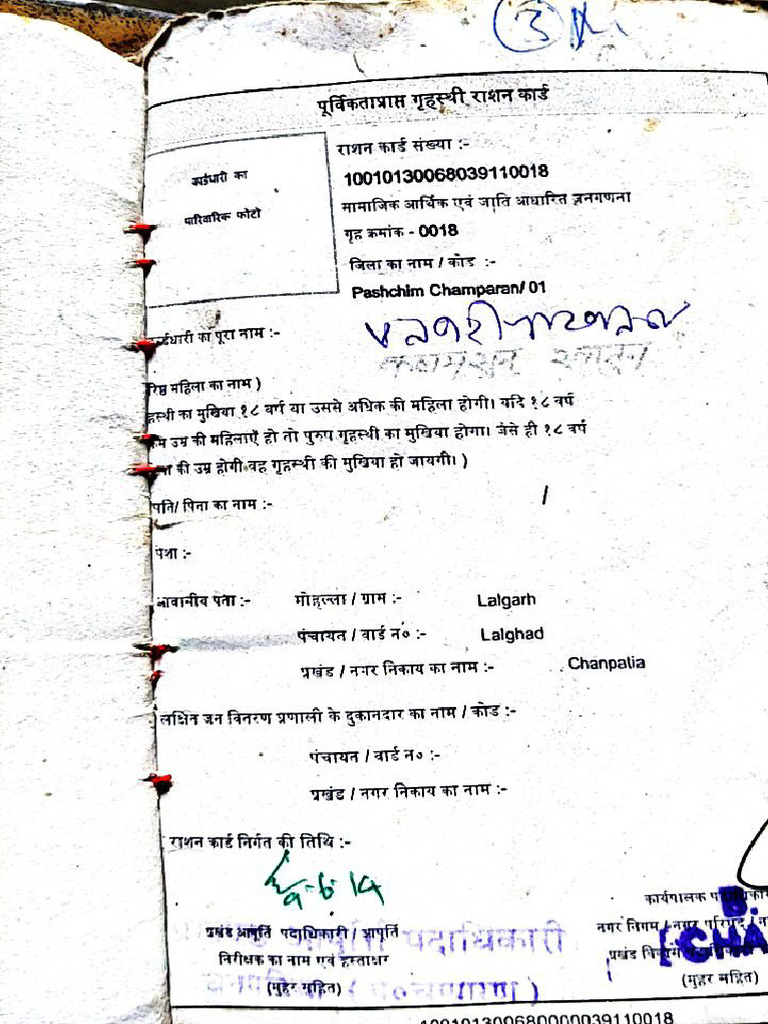 3
पूर्विकताप्राप्त गृहस्थी राशन कार्ड
कार्डधारी का
पारिवारिक फोटो
राशन कार्ड संख्या :-
10010130068039110018
सामाजिक आर्थिक एवं जाति आधारित जनगणना
गृह क्रमांक - 0018
जिला का नाम / कोड :-
Pashchim Champaran/ 01
र्डधारी का पूरा नाम :-
रिष्ठ महिला का नाम )
हस्थी का मुखिया १८ वर्ष या उससे अधिक की महिला होगी। यदि १८ वर्ष
कम उम्र की महिलाएँ हो तो पुरुष गृहस्थी का मुखिया होगा। जैसे ही १८ वर्ष
की उम्र होगी वह गृहस्थी की मुखिया हो जायगी। )
पति/ पिता का नाम :-
पेशा :-
आवासीय पता :- मोहल्ला / ग्राम :- Lalgarh
पंचायत / वार्ड न० :- Lalghad
प्रखंड / नगर निकाय का नाम :- Chanpatia
लक्षित जन वितरण प्रणाली के दुकानदार का नाम / कोड :-
पंचायत / वार्ड न० :-
प्रखंड / नगर निकाय का नाम :-
राशन कार्ड निर्गत की तिथि :-
9-6-14
कार्यपालक
प्रखंड आपूर्ति पदाधिकारी / आपूर्ति
नगर निगम / नगर परिषद / न
निरीक्षक का नाम एवं हस्ताक्षर
प्रखंड
(मुहर सहित)
(मुहर सहित)
पदाधिकारी
B.
CHA
10010130068000039110018